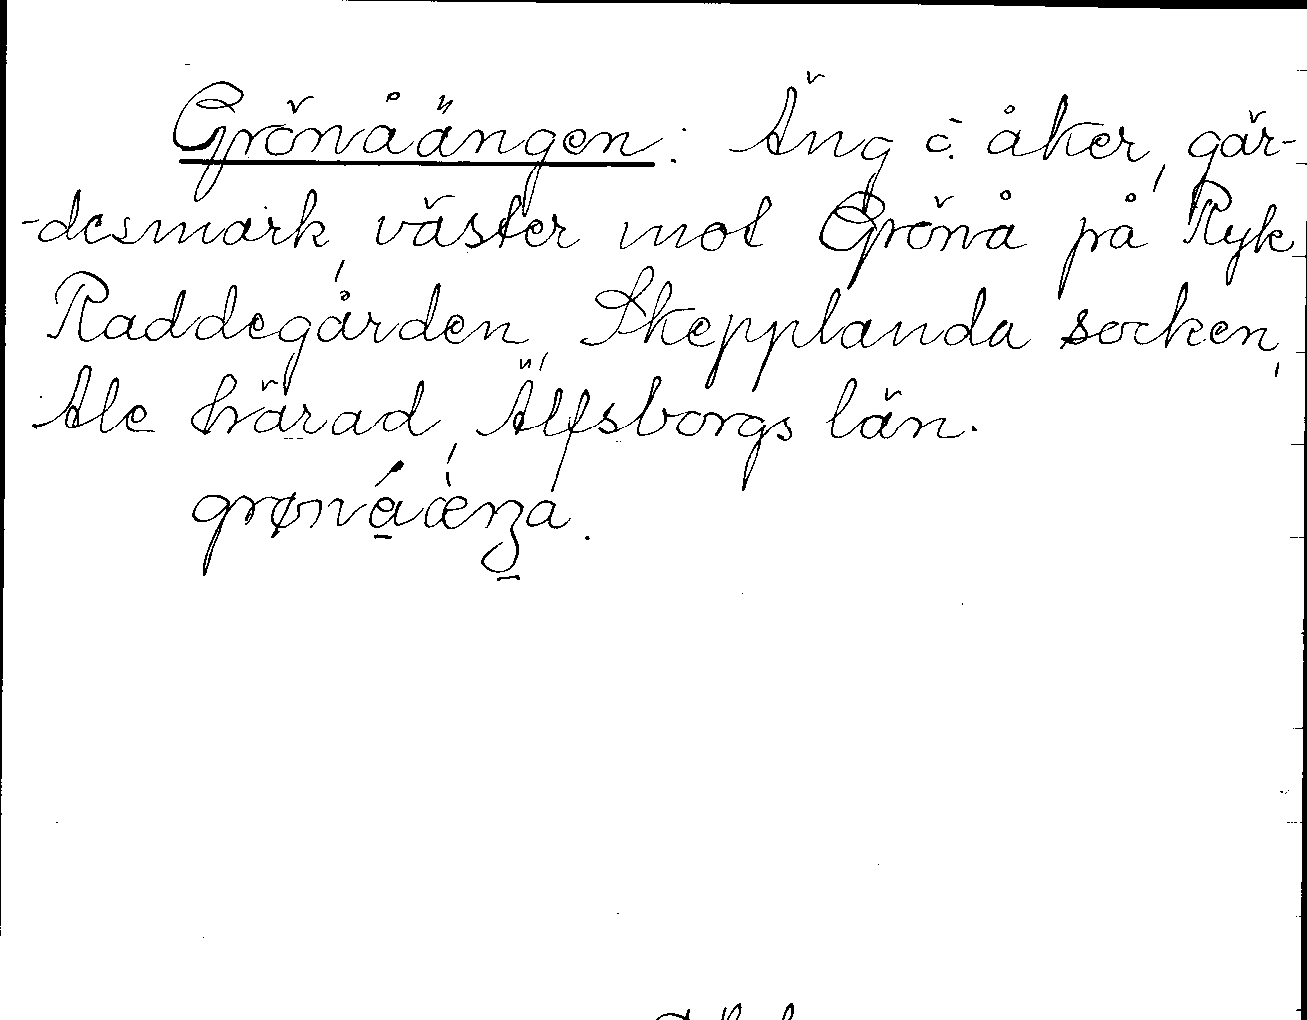 Grönåängen: Äng o. åker, går-
-desmark, väster mot Grönå på Ryk
Raddegården, Skepplanda socken,
Ale härad, Älfsborgs län.